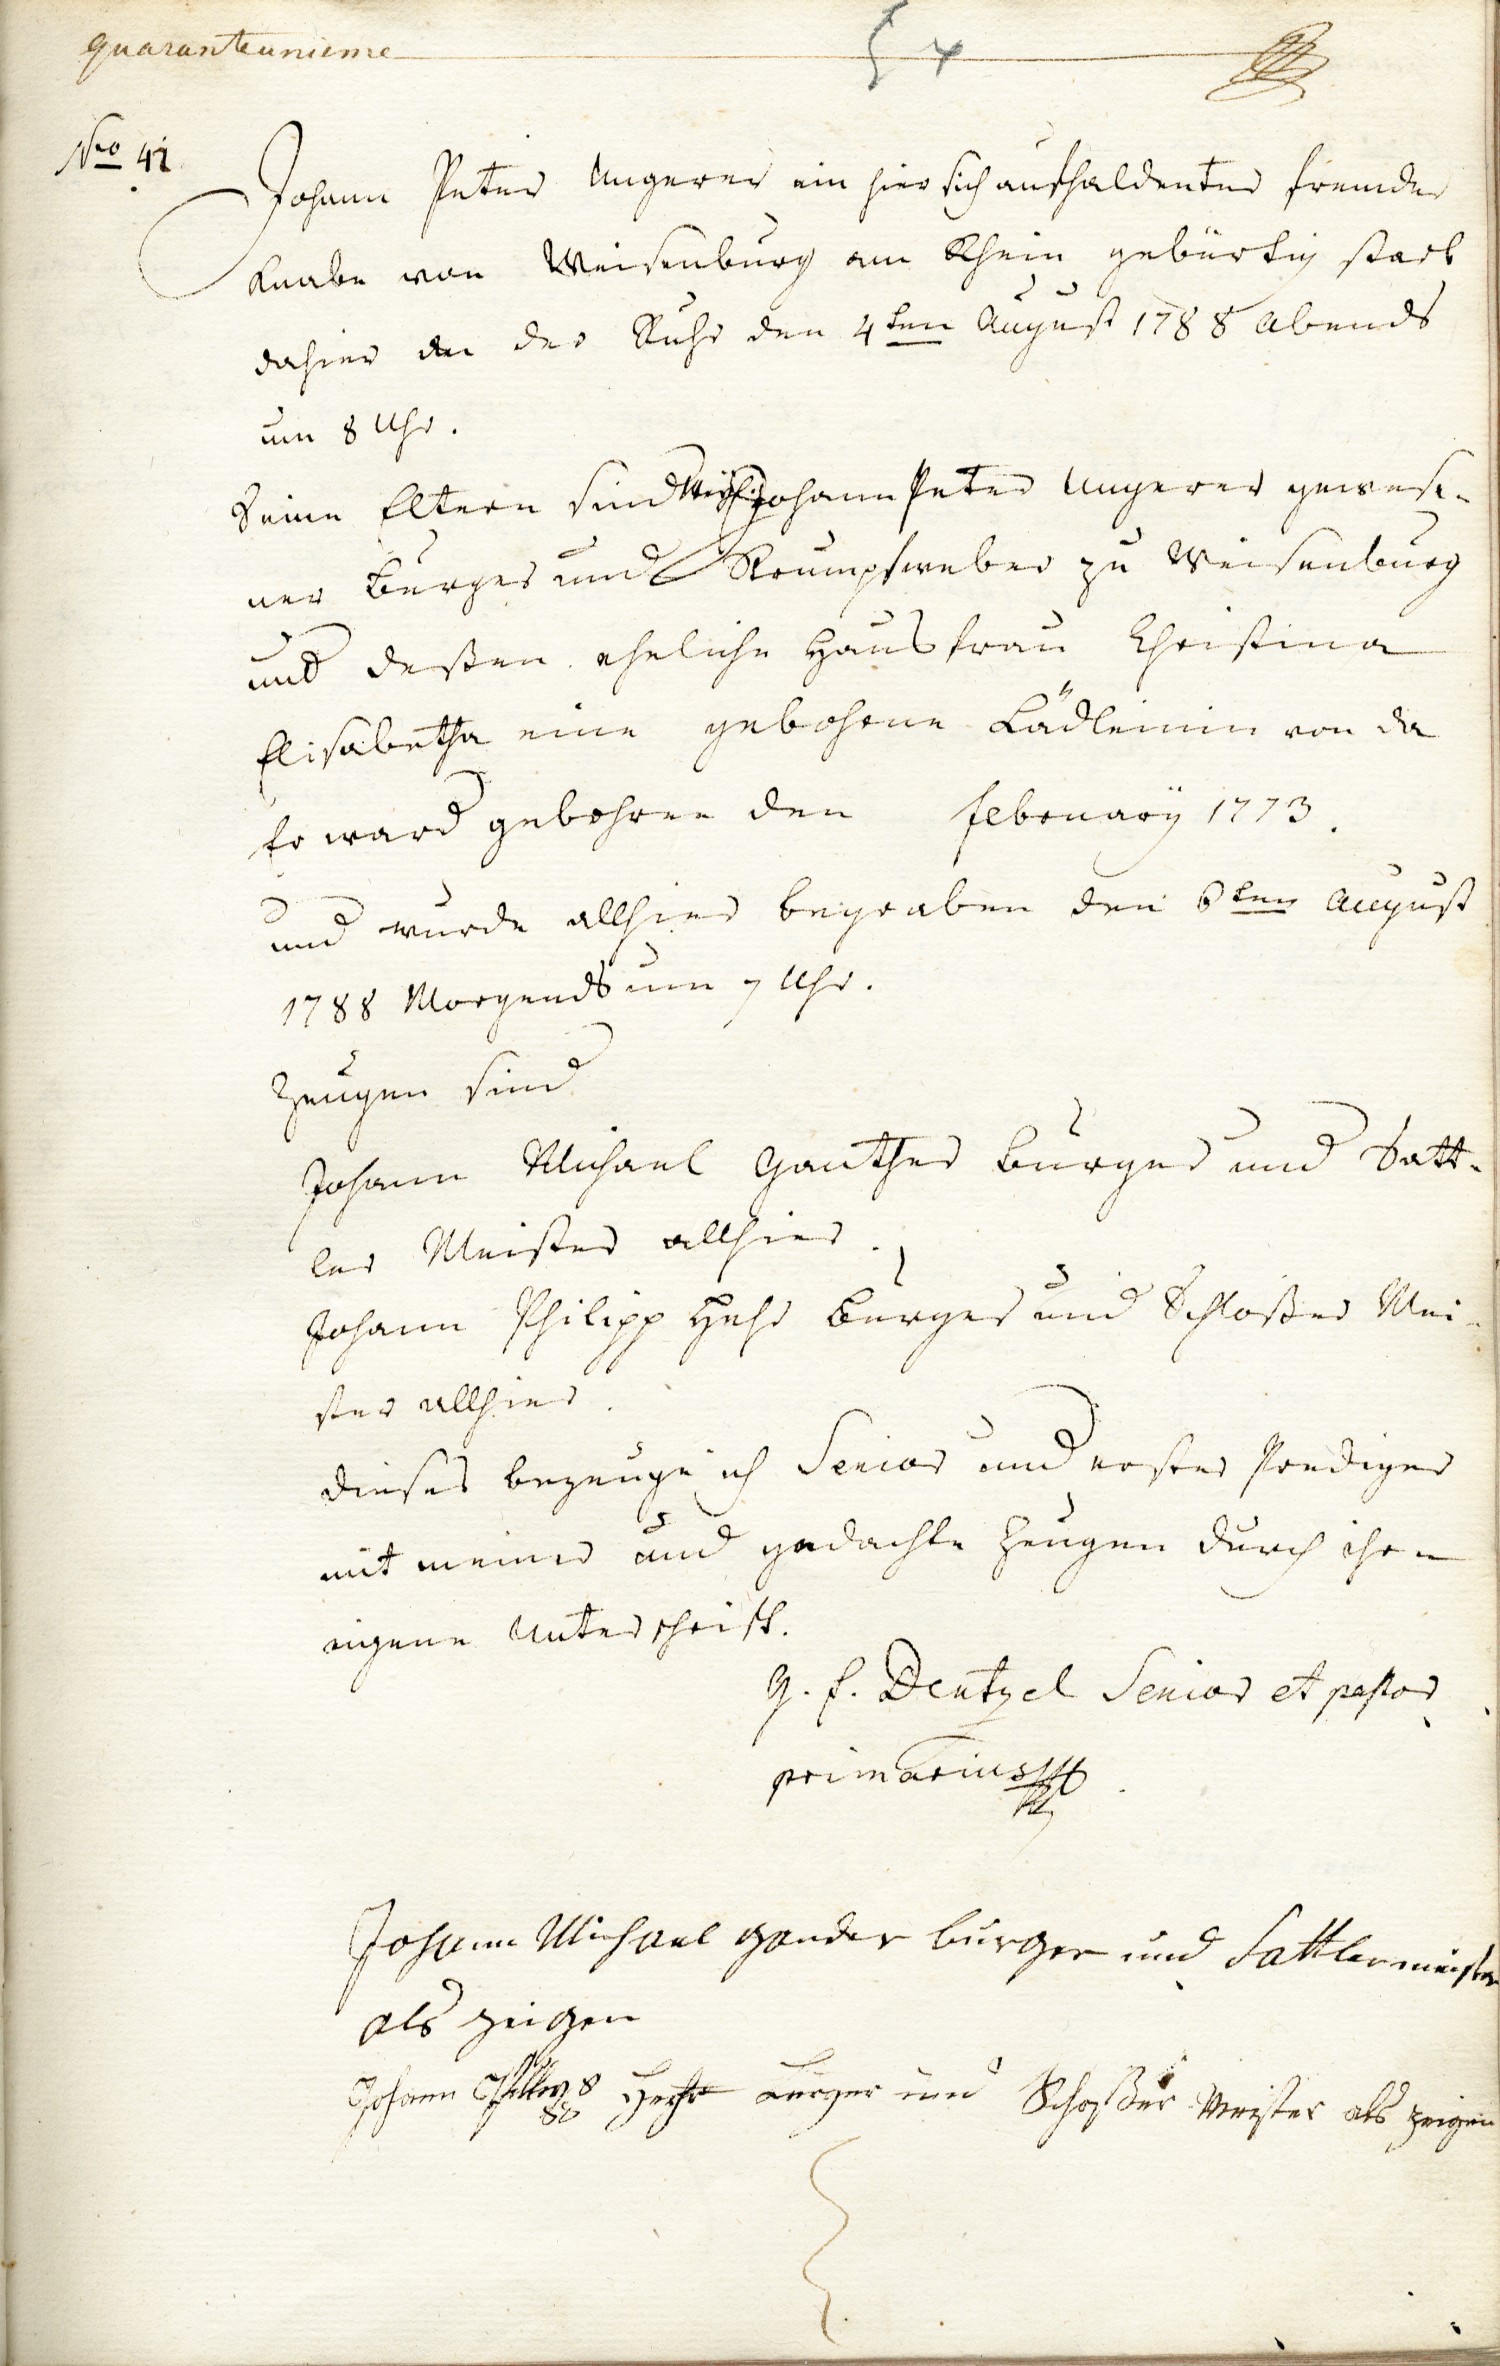 quaranteunieme
Nro 41.
Johann Peter Ungerer ein hier sich aufhaldenter fremder
Knabe von Weisenburg am Rhein gebürtig starb
dahier an der Ruhr den 4ten August 1788 Abends
um 8 Uhr.
Seine Eltern sind Johann Peter Ungerer gewese-
ner Burger und Strumpfweber zu Weisenburg
und deßen eheliche Hausfrau Christina
Elisabetha eine gebohrne Lädleinin von da
Er ward gebohren den February 1773.
und wurde allhier begraben den 6ten August
1788 Morgends um 7 Uhr.
Zeugen sind
Johann Michael Ganther Burger und Satt-
ler Meister allhier.
Johann Philipp Hehr Burger und Schloßer Mei-
ster allhier.
dieses bezeuge ich Senior und erster Prediger
mit meiner und gedachte Zeugen durch ihre
eigene Unterschrift.
G. F. Dentzel Senior et pastor
primarius
Johann Michael Gander burger und Sattlermeister
als zeigen
Johann Burger und Schoßer Meister als zeigen